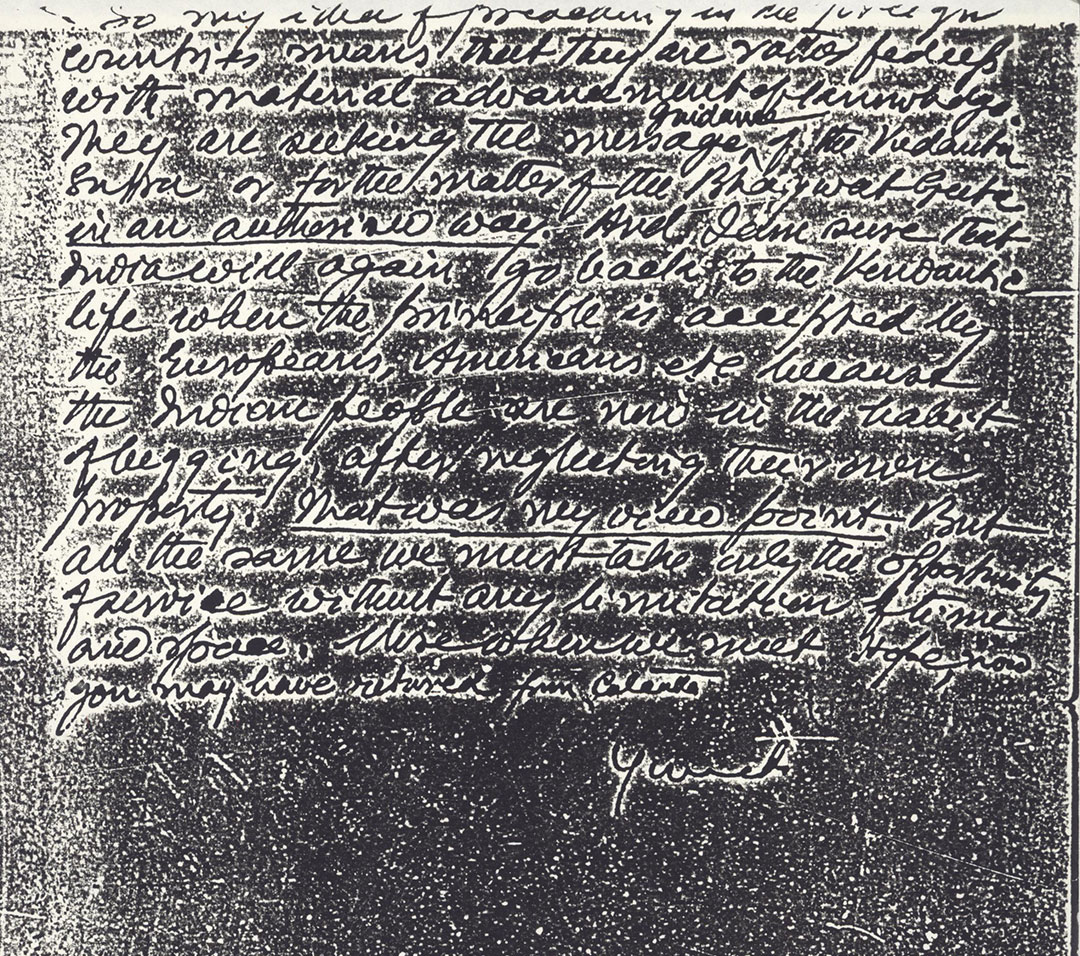 So my idea of preaching in the foreign
countries means that they are rather fed up
with material advancement of knowledge.
guidance
They are seeking the message of the Vedanta
Sutra or for the matter of the Bhagwat Geeta
in an authorised way. And I am sure that
India will again go back to the Vendantic
life when the principle is accepted by
the Europeans, Americans etc because
the Indian people are now in the habit
of begging, after neglecting their own
property. That was my view point. But
all the same we must take only the opportunity
of service without any limitation of time
and space. More when we meet. Hope, now
you may have returned from Calcutta